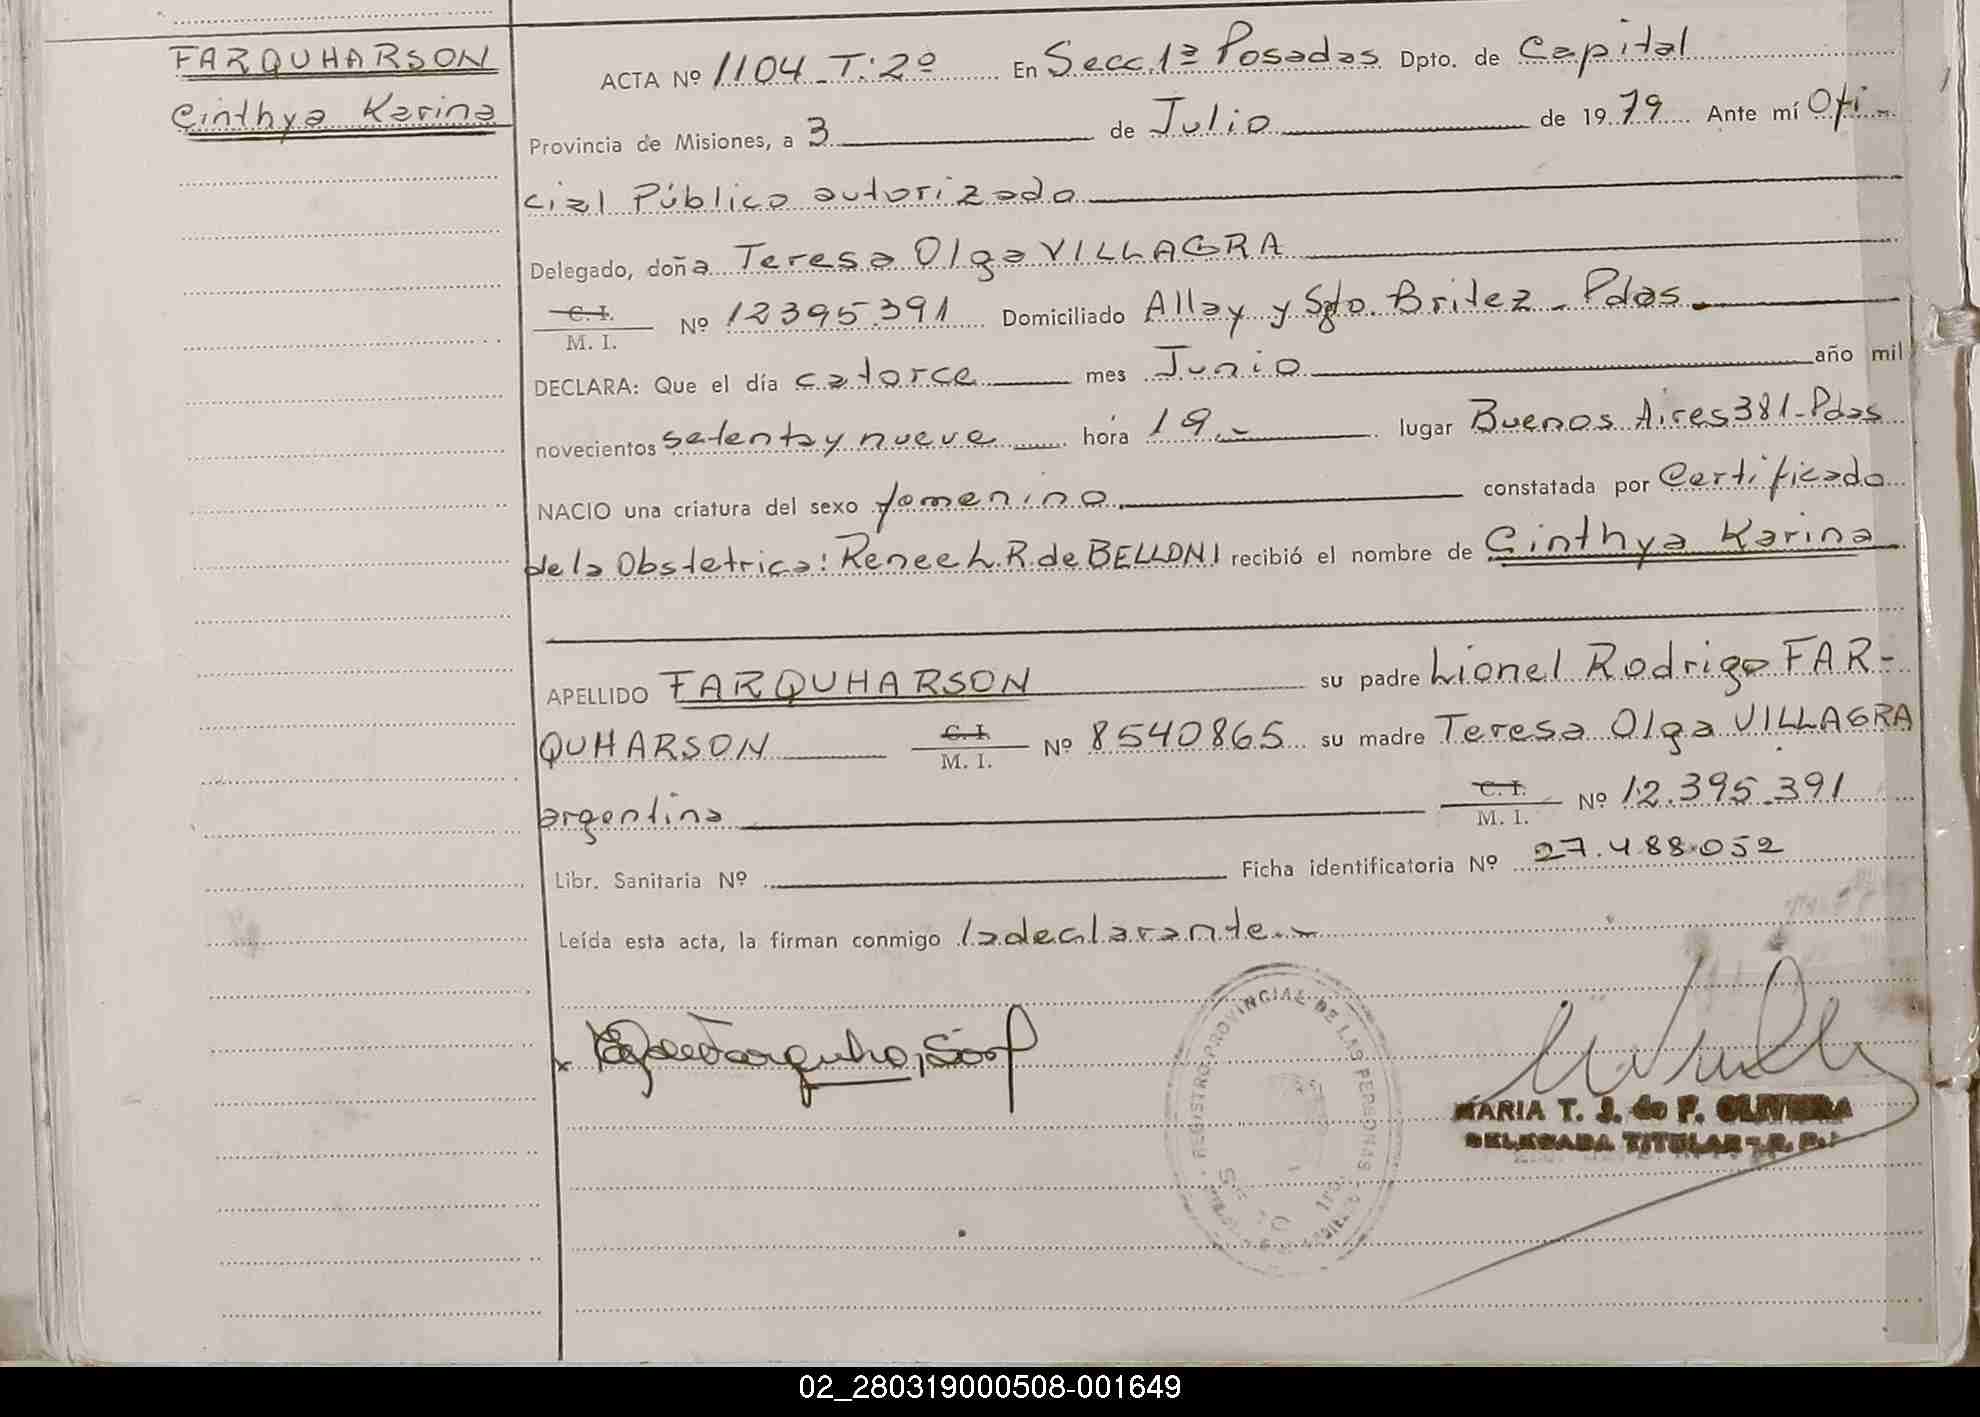 FARQUHARSON
Cinthya Karina
ACTA Nº 1104 T: 2º En Secc. 1ª Posadas Dpto. de Capital
Provincia de Misiones, a 3 de Julio de 1979 Ante mí Ofi-
cial Público autorizado
Delegado, doña Teresa Olga VILLAGRA
C. I.
M. I. Nº 12395.391 Domiciliado Allay y Sgto. Britez - Pdas.
DECLARA: Que el día catorce mes Junio año mil
novecientos setenta y nueve hora 19.- lugar Buenos Aires 381-Pdas
NACIO una criatura del sexo femenino constatada por Certificado
de la Obstetrica: Renee L. R. de BELLONI recibió el nombre de Cinthya Karina
APELLIDO FARQUHARSON su padre Lionel Rodrigo FAR-
QUHARSON C. I. M. I. Nº 8540865 su madre Teresa Olga VILLAGRA
argentina C. I. M. I. Nº 12.395.391
Libr. Sanitaria Nº Ficha identificatoria Nº 27.488.052
Leída esta acta, la firman conmigo la declarante.-
REGISTRO PROVINCIAL DE LAS PERSONAS
MARIA T. J. de F. OLIVERA
DELEGADA TITULAR - R. P.
02_280319000508-001649